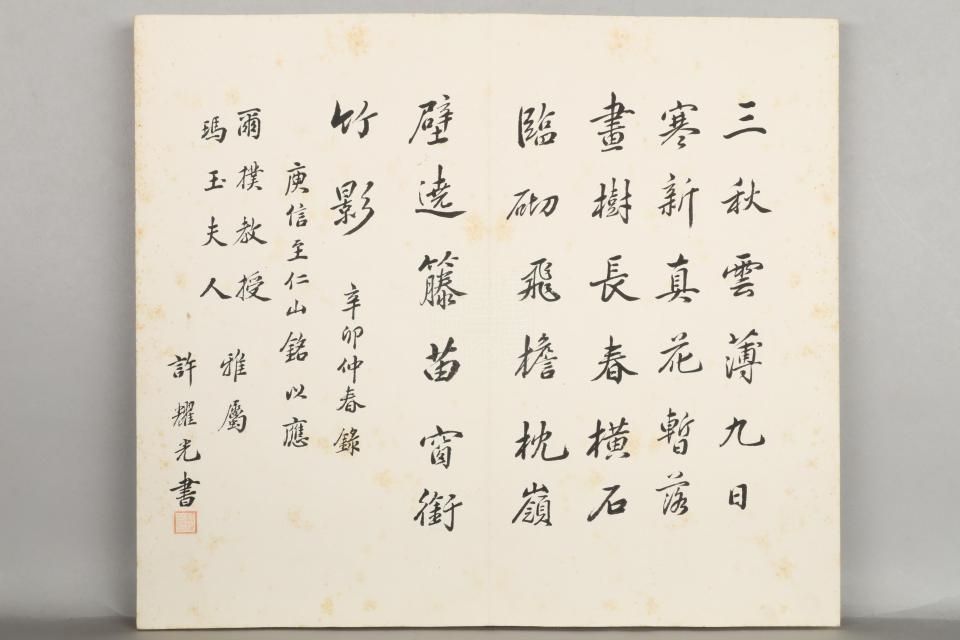 三秋雲薄九日
寒新真花暫落
畫樹長春橫石
臨砌飛檐枕嶺
壁遶籐苗窗銜
竹影 辛卯仲春錄
庚信至仁山銘以應
爾樸教授
瑪玉夫人 雅屬
許耀光書